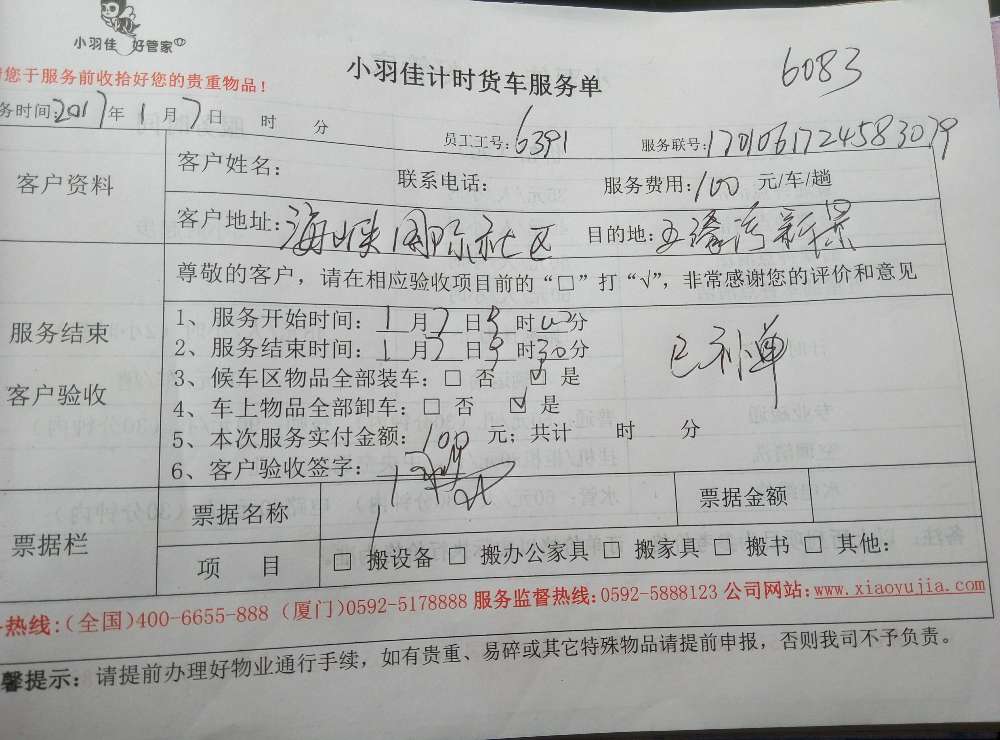 小羽佳 好管家
您于服务前收拾好您的贵重物品!
小羽佳计时货车服务单
6083
务时间:2017年1月7日 时 分
员工工号:6391
服务联号:1701061724583079
客户资料
客户姓名: 联系电话: 服务费用:100元/车/趟
客户地址:海峡国际社区 目的地:五缘湾新景
尊敬的客户,请在相应验收项目前的“□”打“√”,非常感谢您的评价和意见
服务结束
客户验收
1、服务开始时间:1月7日 时 分
2、服务结束时间:1月7日9时30分
已补单
3、候车区物品全部装车:□ 否 ☑ 是
4、车上物品全部卸车:□ 否 ☑ 是
5、本次服务实付金额:100元;共计 时 分
6、客户验收签字:
票据栏
票据名称 票据金额
项 目 □ 搬设备 □ 搬办公家具 □ 搬家具 □ 搬书 □ 其他:
热线:(全国)400-6655-888 (厦门)0592-5178888 服务监督热线:0592-5888123 公司网站:www.xiaoyujia.com
馨提示: 请提前办理好物业通行手续,如有贵重、易碎或其它特殊物品请提前申报,否则我司不予负责。